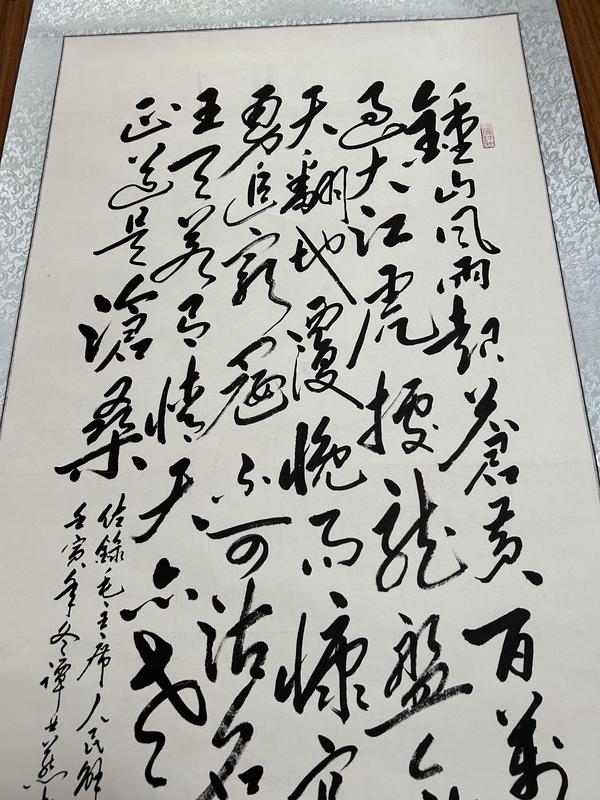 鍾山風雨起蒼黃百萬
過大江虎據龍盤今
天翻地覆慨而慷宜
勇追窮寇不可沽名
王天若有情天亦老
正道是滄桑
錄毛主席人民解
壬寅年冬譚